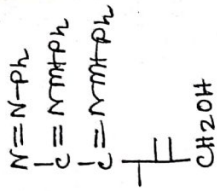 N=N-Ph
C=NNHPh
C=NNHPh
CH2OH